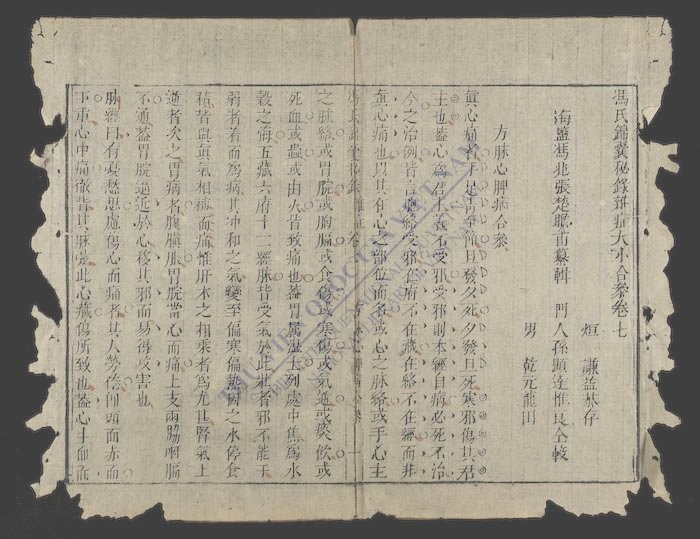 馮氏錦囊秘錄雜症大小合參卷七
海鹽馮兆張楚瞻甫纂輯 門人孫顯達惟良仝較
男 乾元龍田
方脉心脾病合參
真心痛者手足青至節旦發夕死夕發旦死寒邪傷其君
主也蓋心為君主義不受邪受邪則本經自病必死不治
今之治例皆言胞絡受邪在府不在藏在絡不在經而非
真心痛也以其在心之部位而名或心之脉絡或手心主
之脉絡或胃脘或胸膈或食傷或寒傷或氣逆或痰飲或
死血或蟲或由火皆致痛也蓋胃屬濕土列處中焦為水
穀之海五藏六府十二經脉皆受氣於此壯者邪不能干
弱者着而為病其冲和之氣變至偏寒偏熱因之水停食
積皆與真氣相搏而痛惟肝木之相乘者為尤甚腎氣上
逆者次之胃病者腹䐜脹胃脘當心而痛上支兩脇咽膈
不通蓋胃脘逼近於心移其邪而易得攻害也
脉經曰有憂愁思慮傷心而痛者其人勞倦即頭面赤而
下重心中痛徹背其脉弦此心藏傷所致也蓋心主血而
THƯ VIỆN QUỐC GIA VIỆT NAM